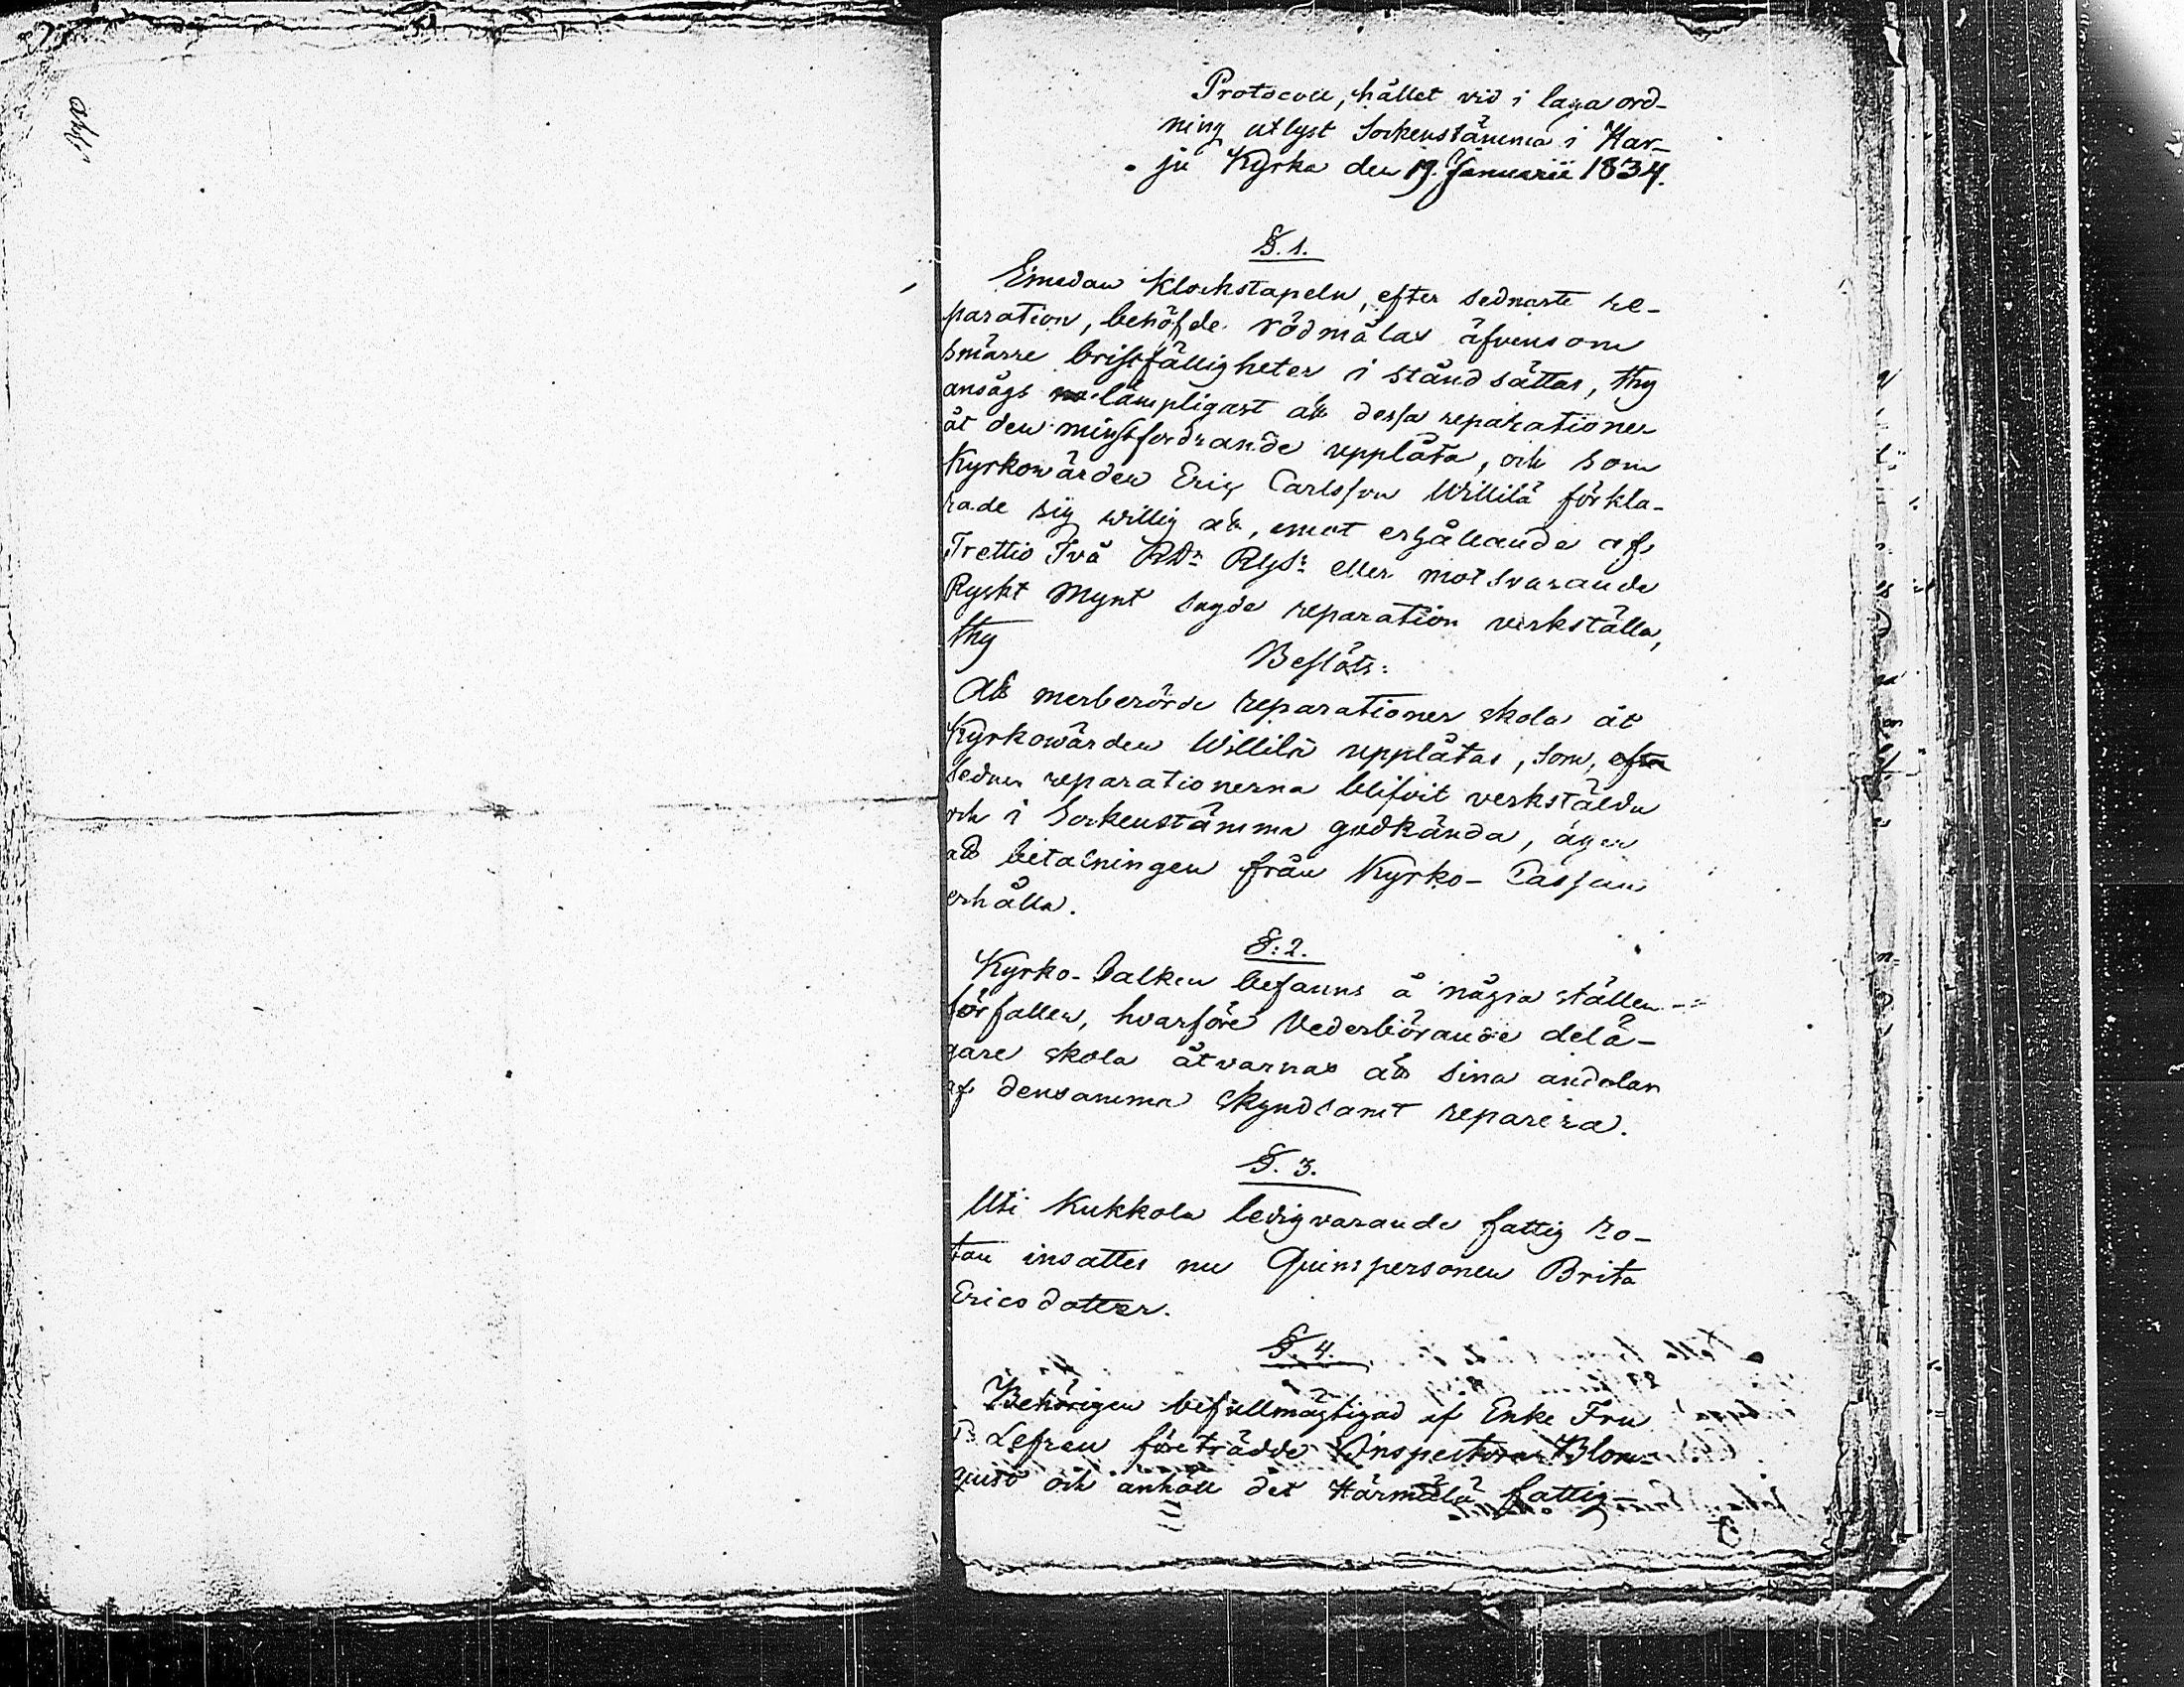 Protocoll, hållet vid i laga ord-
ning utlyst Sockenstämma i Kar-
ju Kyrka den 19. Januarii 1834.
§. 1.
Emedan Klockstapeln, efter sednaste re-
paration, behöfde rödmålas äfvensom
smärre bristfälligheter i stånd sättas, thy
ansågs lämpligast att dessa reparationer
åt den minstfordrande upplåta, och som
Kyrkowärden Eric Carlsson Willilä förkla-
rade sig willig att, emot erhållande af
Trettio Två RDr RGds: eller motsvarande
Ryskt Mynt sagde reparation verkställa,
thy
Beslöts:
Att merberörde reparationer skola åt
Kyrkowärden Willilä upplåtas, som, efter
sedan reparationerna blifvit verkstälda
och i Sockenstämma godkända, äger
att betalningen från Kyrko-Cassan
erhålla.
§: 2.
Kyrko-balken befanns å några ställen
förfallen, hvarföre Vederbörande delä-
gare skola åtvarnas att sina andelar
af densamma skyndsamt reparera.
§. 3.
Uti Kukkola ledigvarande fattig ro-
tan insattes nu Quinspersonen Brita
Ericsdotter.
§. 4.
Behörigen befullmägtigad af Enke Fru
Lefren företrädde Inspectoren Blom-
quist och anhöll det Härmälä fattig-